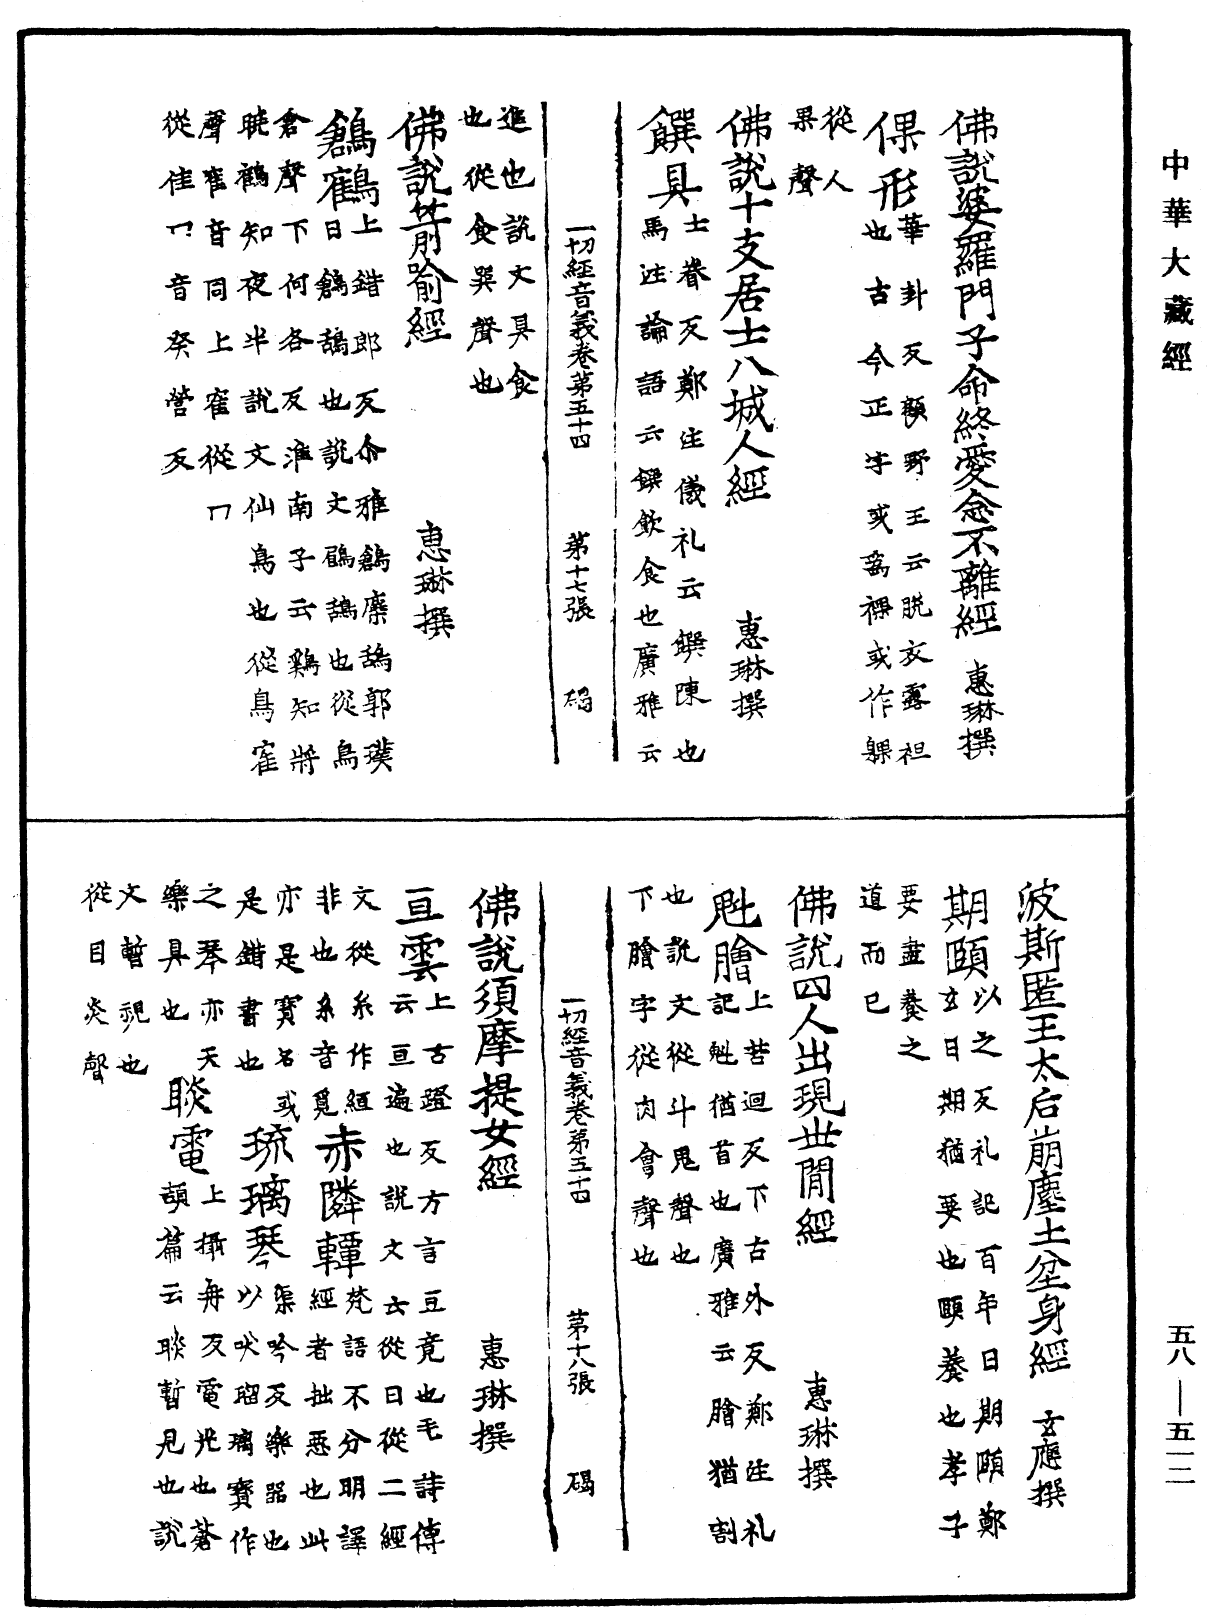 中華大藏經
佛說婆羅門子命終愛念不離經 惠琳撰
倮形 華卦反顧野王云脫衣露袒
也古今正字或為裸或作躶
從人
果聲
佛說十支居士八城人經 惠琳撰
饌具 士眷反鄭注儀礼云饌陳也
馬注論語云饌飲食也廣雅云
一切經音義卷第五十四 第十七張 碣
進也說文具食
也從食巽聲也
佛說箭喻經 惠琳撰
鶬鶴 上錯郎反尒雅鶬麋鴰郭璞
曰鶬鴰也說文鶬鴰也從鳥
倉聲下何各反淮南子云雞知將
曉鶴知夜半說文仙鳥也從鳥隺
聲隺音同上隺從冖
從隹冖音癸營反
波斯匿王太后崩塵土坌身經 玄應撰
期頤 以之反礼記百年曰期頤鄭
玄曰期猶要也頤養也孝子
要盡養之
道而已
佛說四人出現世間經 惠琳撰
魁膾 上苦迴反下古外反鄭注礼
記魁猶首也廣雅云膾猶割
也說文從斗鬼聲也
下膾字從肉會聲也
一切經音義卷第五十四 第十八張 碣
佛說須摩提女經 惠琳撰
亘雲 上古蹬反方言亘竟也毛詩傳
云亘遍也說文云從日從二經
文從糸作縆 赤隣䡅 梵語不分明譯
非也糸音覓 經者拙惡也此
亦是寶名或 琉璃琴 渠吟反樂器也
是錯書也 以吠瑠璃寶作
之琴亦天 睒電 上攝冉反電光也蒼
樂具也 頡篇云睒暫見也說
文暫視也
從目炎聲
五八—五一二